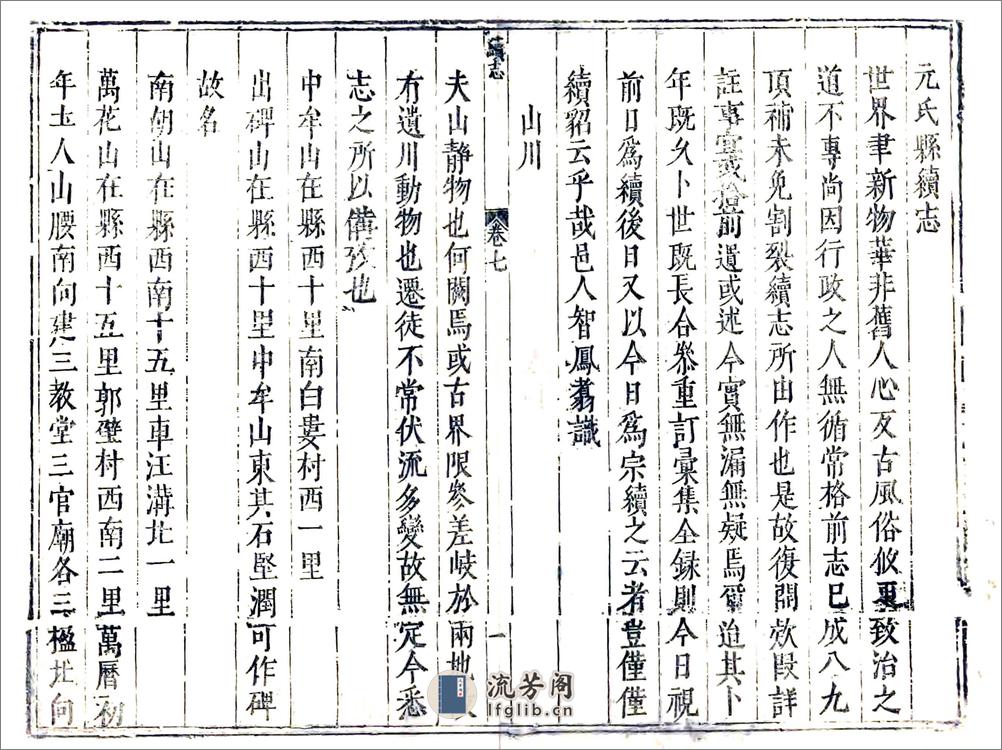 元氏縣續志
世界聿新物華非舊人心反古風俗攸更致治之
道不專尚因行政之人無循常格前志已成八九
頂補未免割裂續志所由作也是故復開款段詳
註事宜或拾前遺或述今實無漏無疑焉爾迨其卜
年既久卜世既長合參重訂彙集全録則今日視
前日爲續後日又以今日爲宗續之云者豈僅僅
續貂云乎哉邑人智鳳翥識
山川
續志
卷七
一
夫山靜物也何關焉或古界限參差岐於兩地
有遺川動物也遷徒不常伏流多變故無定今悉
志之所以備攷也
中牟山在縣西十里南白婁村西一里
出碑山在縣西十里中牟山東其石堅潤可作碑
故名
南朝山在縣西南十五里車汪溝北一里
萬花山在縣西十五里郭壁村西南二里萬曆初
年土人山腰南向建三教堂三官廟各三楹北向
流芳阁
lfglib.cn